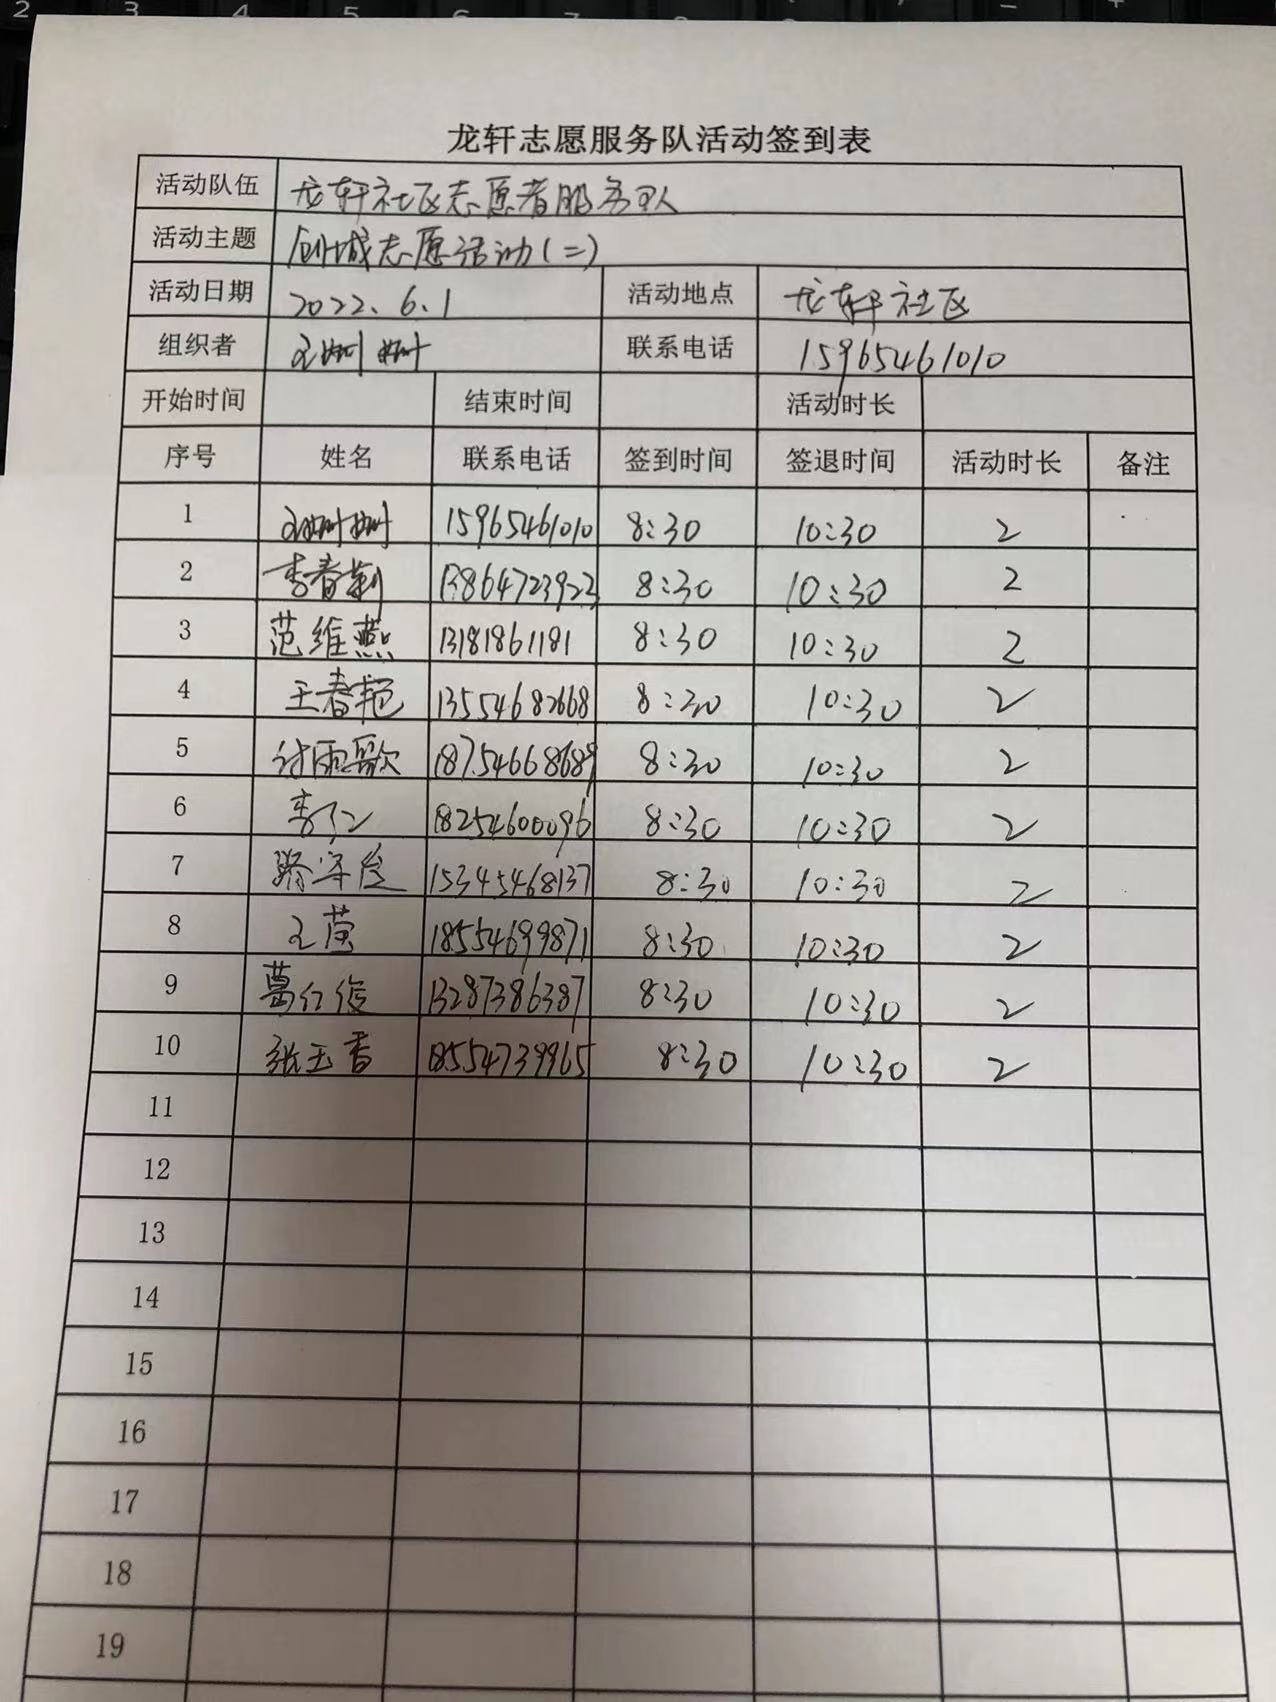 龙轩志愿服务队活动签到表
活动队伍 龙轩社区志愿者服务队
活动主题 创城志愿活动(二)
活动日期 2022.6.1 活动地点 龙轩社区
组织者 王姗姗 联系电话 15965461010
开始时间 结束时间 活动时长
序号 姓名 联系电话 签到时间 签退时间 活动时长 备注
1 王姗姗 15965461010 8:30 10:30 2
2 李春莉 13864723923 8:30 10:30 2
3 范维燕 13181861181 8:30 10:30 2
4 王春艳 13554682668 8:30 10:30 2
5 雨歌 18754668689 8:30 10:30 2
6 李仁 18254600096 8:30 10:30 2
7 15345468137 8:30 10:30 2
8 王茵 18554699871 8:30 10:30 2
9 葛红俊 13287386387 8:30 10:30 2
10 张玉香 18554739965 8:30 10:30 2
11
12
13
14
15
16
17
18
19